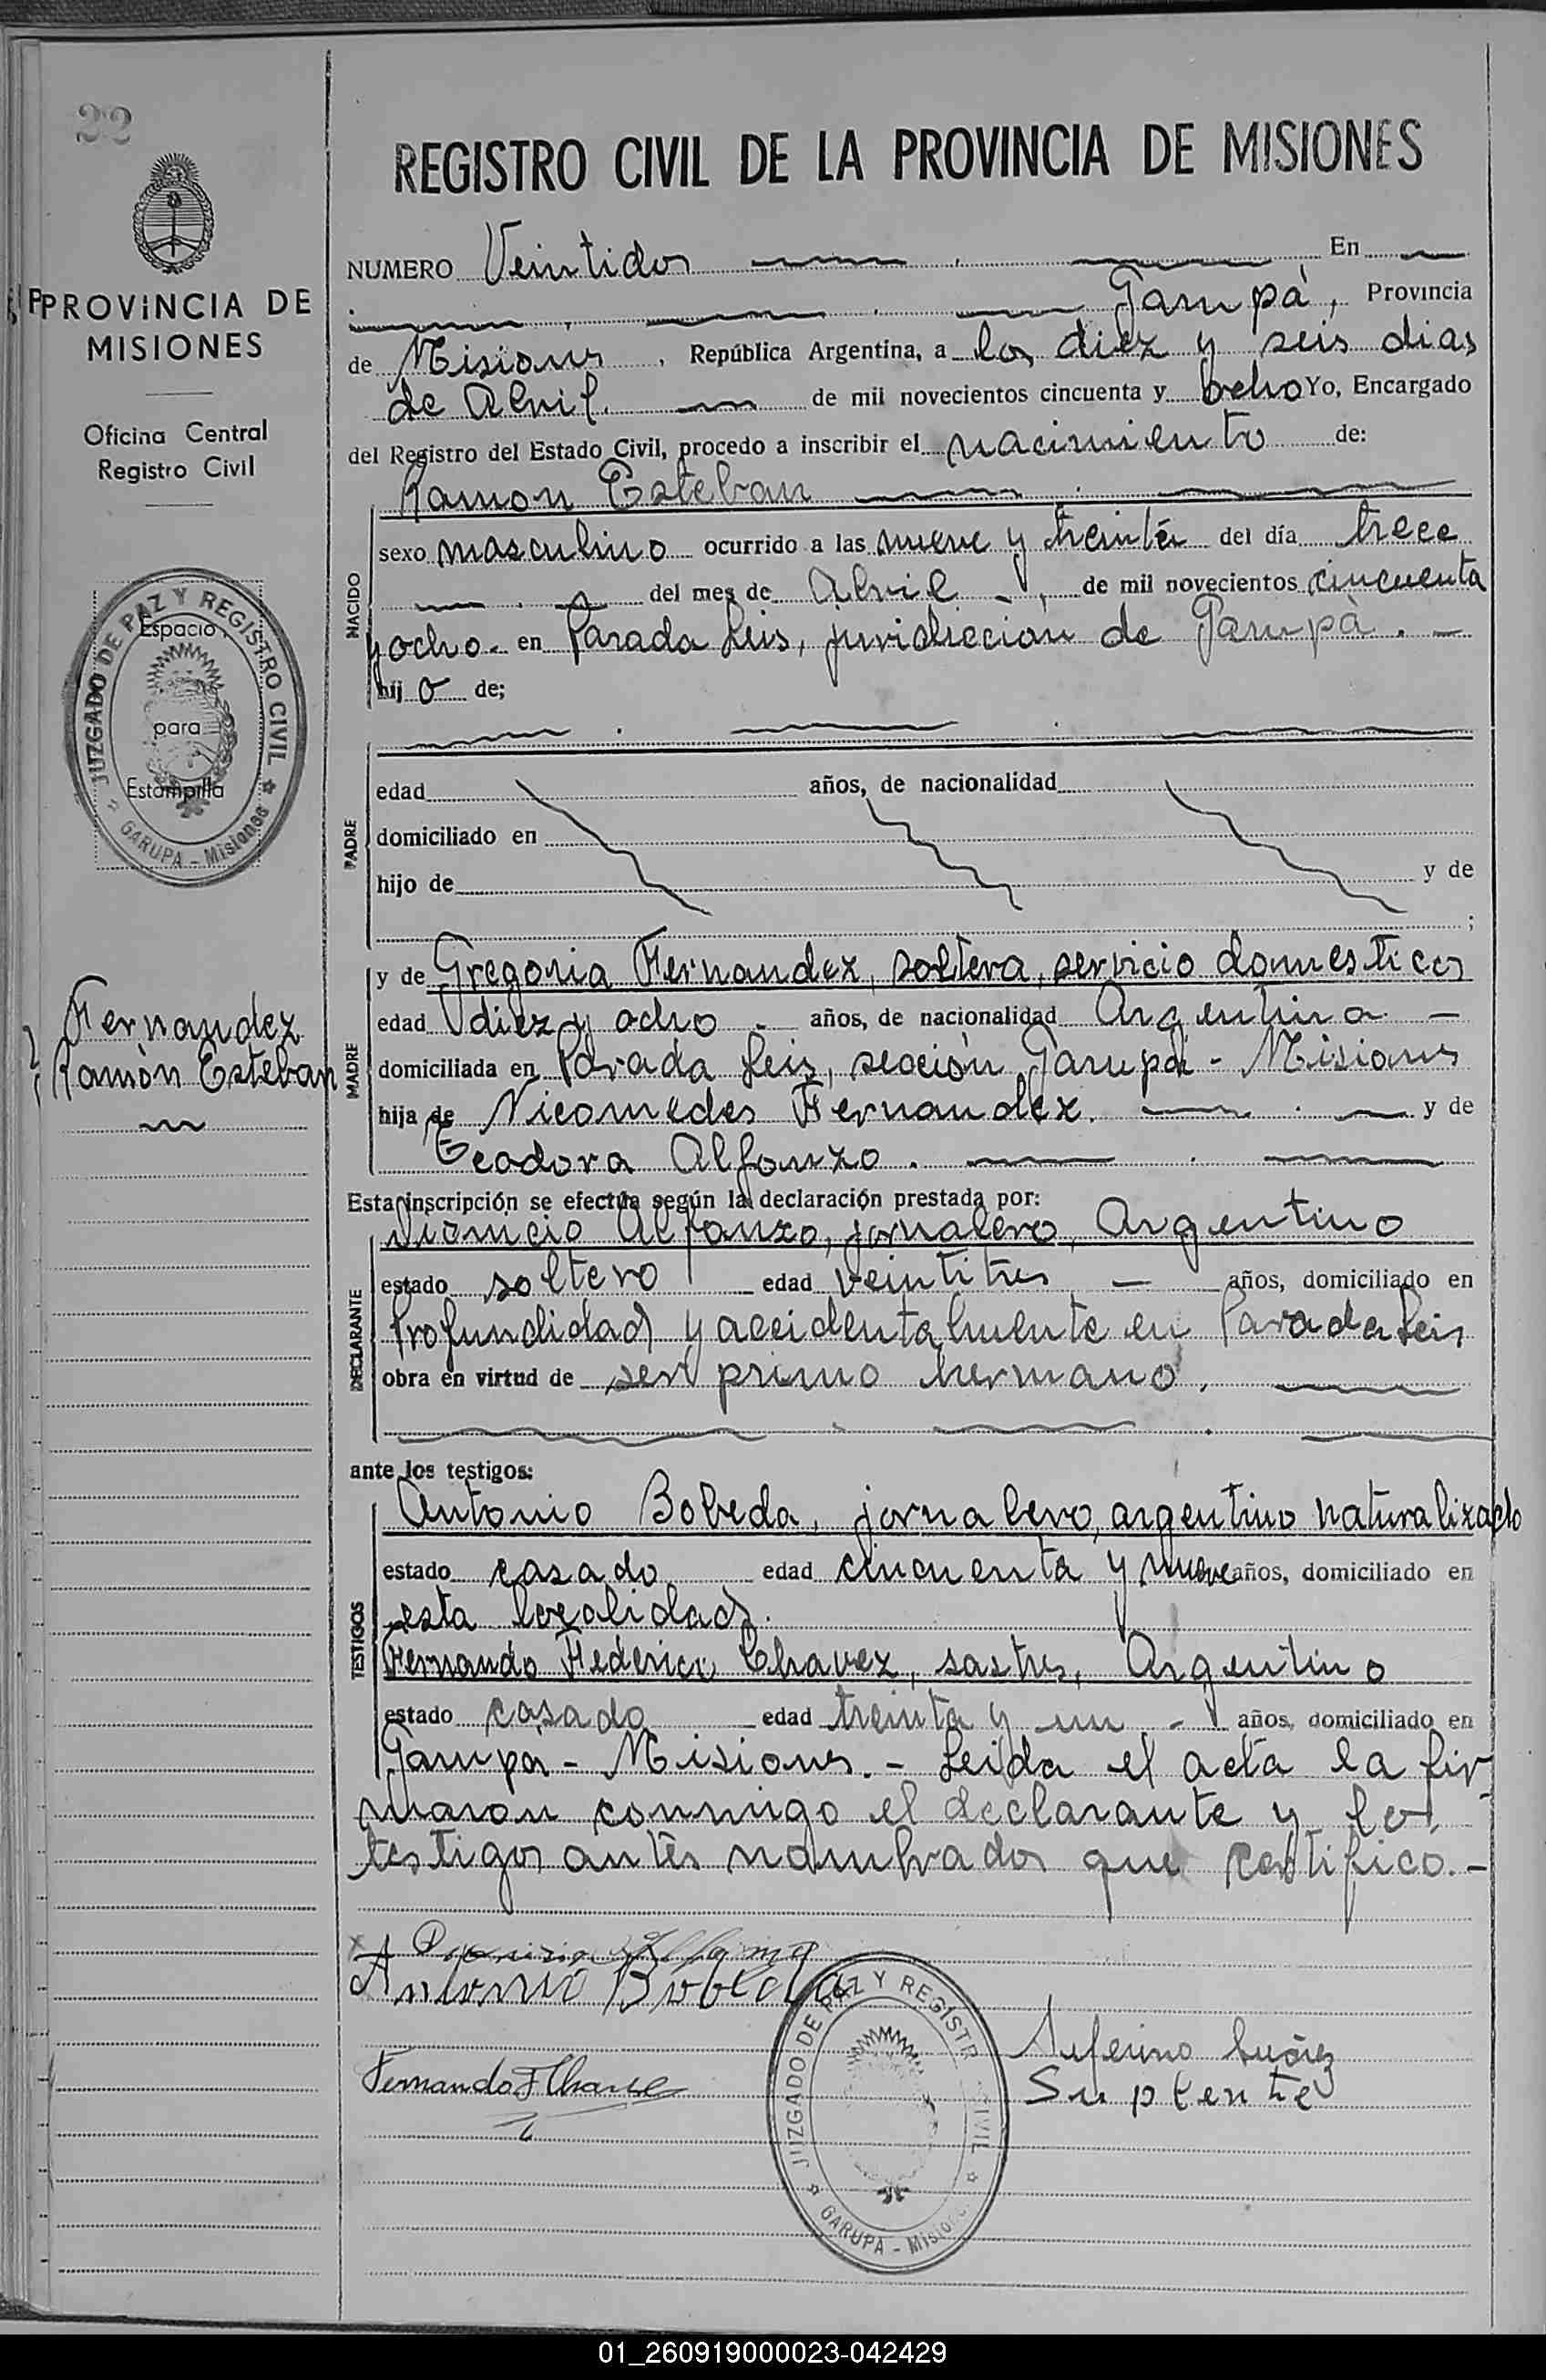 22
PROVINCIA DE
MISIONES
Oficina Central
Registro Civil
JUZGADO DE PAZ Y REGISTRO CIVIL
GARUPA - Misiones
Espacio
para
Estampilla
Fernandez
Ramòn Esteban
REGISTRO CIVIL DE LA PROVINCIA DE MISIONES
NUMERO Veintidos En
Garupá, Provincia
de Misiones, República Argentina, a los diez y seis dias
de Abril. de mil novecientos cincuenta y ocho Yo, Encargado
del Registro del Estado Civil, procedo a inscribir el nacimiento de:
Ramon Esteban
NACIDO
sexo masculino ocurrido a las nueve y treinta del día trece
del mes de Abril -, de mil novecientos cincuenta
y ocho.- en Parada Leis, juridiccion de Garupà. -
hijo de;
PADRE
edad años, de nacionalidad
domiciliado en
hijo de y de
;
MADRE
y de Gregoria Fernandez, soltera, servicio domesticos
edad diez y ocho - años, de nacionalidad Argentina -
domiciliada en Parada Leis, sección Garupá - Misiones
hija de Nicomedes Fernandez. y de
Teodora Alfonzo.
Esta inscripción se efectúa según la declaración prestada por:
DECLARANTE
Alfonzo, jornalero, Argentino
estado soltero edad veintitres - años, domiciliado en
Profundidad y accidentalmente en Parada Leis
obra en virtud de ser primo hermano.
ante los testigos:
TESTIGOS
Antonio Bobeda, jornalero, argentino naturalizado
estado casado edad cincuenta y nueve años, domiciliado en
esta localidad.
Fernando Federico Chavez, sastre, Argentino
estado casado edad treinta y un - años, domiciliado en
Garupá - Misiones. - Leida el acta la fir
maron conmigo el declarante y los
testigos antes nombrados que certifico. -
Antonio Bobeda
Fernando F Chavez
JUZGADO DE PAZ Y REGISTR CIVIL
GARUPA - Misiones
Suferino Suárez
Suplente
01_260919000023-042429